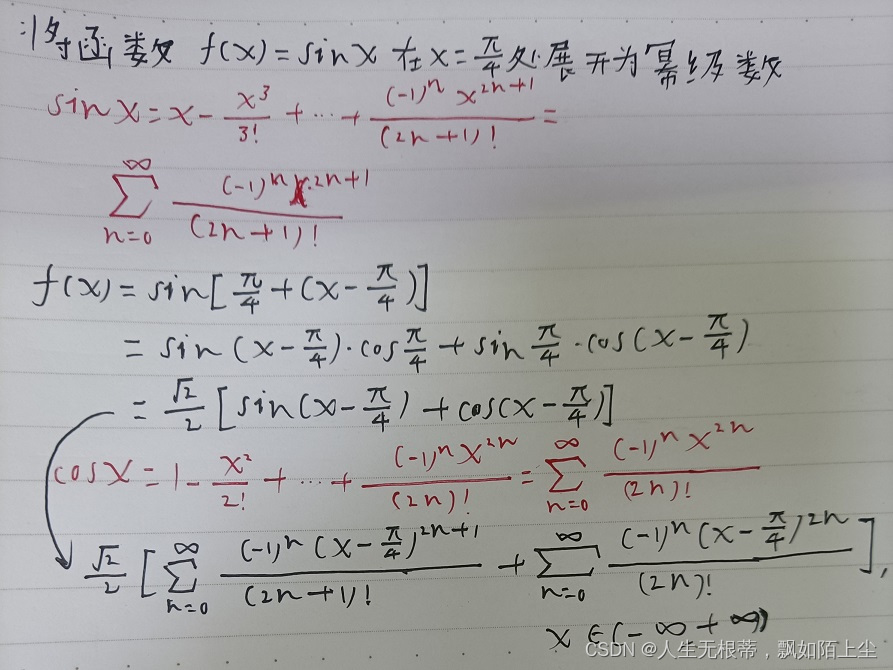 将函数 f(x)=sinx 在x=π/4处展开为幂级数
sinx=x-x³/3!+⋯+(-1)ⁿx²ⁿ⁺¹/(2n+1)!=
∑_{n=0}^{∞} (-1)ⁿx²ⁿ⁺¹/(2n+1)!
f(x)=sin[π/4+(x-π/4)]
=sin(x-π/4)·cosπ/4+sinπ/4·cos(x-π/4)
=√2/2[sin(x-π/4)+cos(x-π/4)]
cosx=1-x²/2!+⋯+(-1)ⁿx²ⁿ/(2n)!=∑_{n=0}^{∞} (-1)ⁿx²ⁿ/(2n)!
√2/2[∑_{n=0}^{∞} (-1)ⁿ(x-π/4)²ⁿ⁺¹/(2n+1)!+∑_{n=0}^{∞} (-1)ⁿ(x-π/4)²ⁿ/(2n)!],
x∈(-∞+∞)
CSDN @人生无根蒂，飘如陌上尘